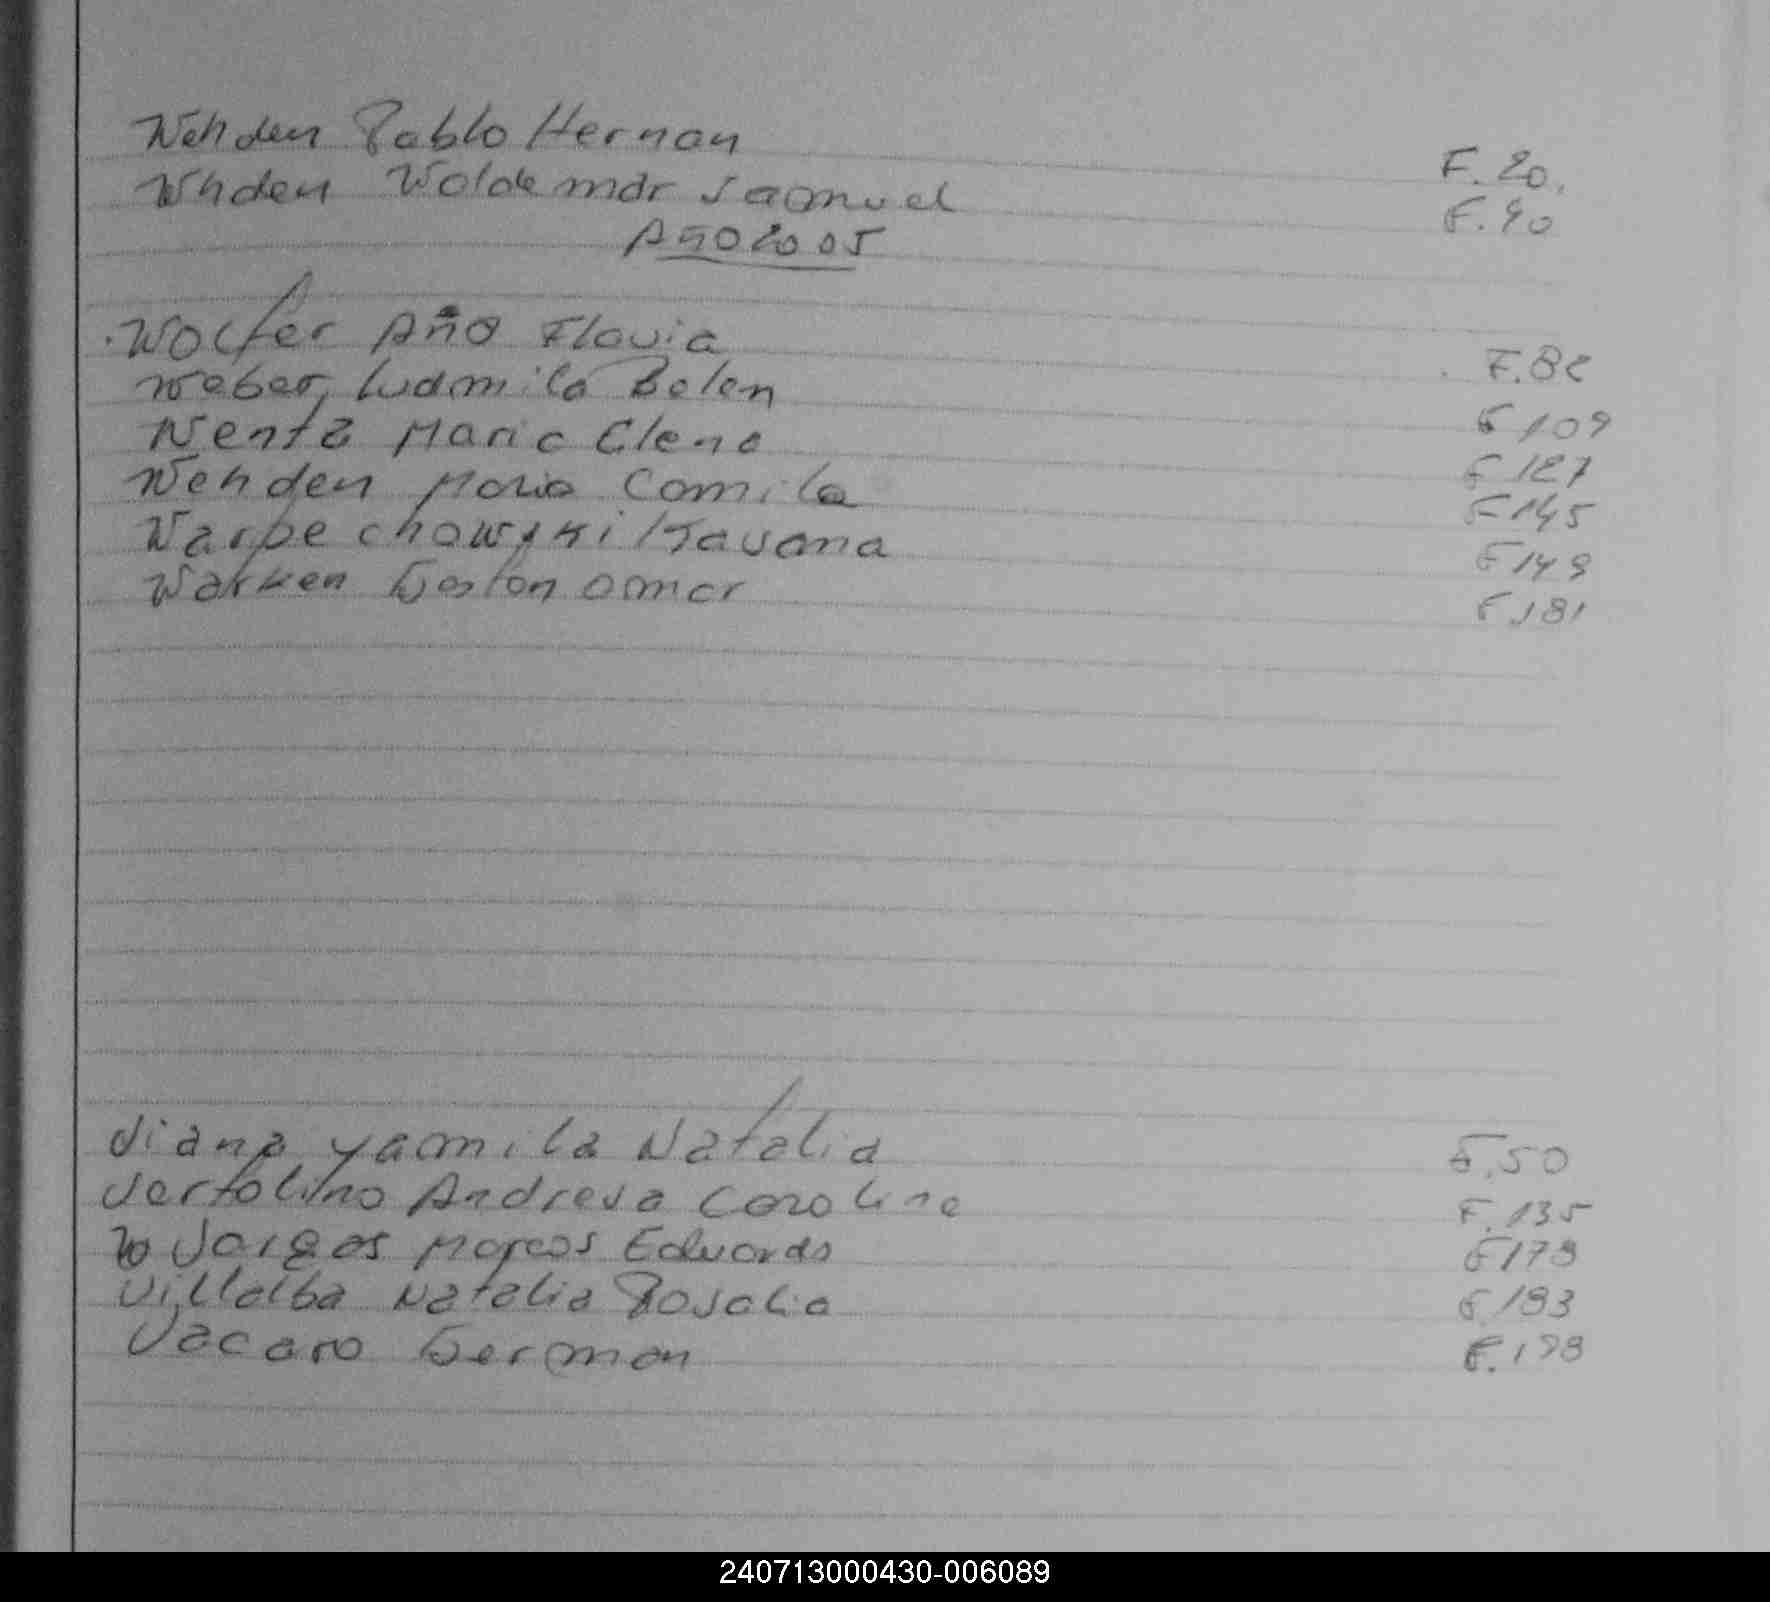 Wehden Pablo Hernan F. 20.
Whden Woldemar Samuel F. 40
Año 2005
Wolfer Año Flavia F. 82
Weber, Ludmila Belen F 109
Wentz Maria Elena F 127
Wehden Maria Camila F 145
Warpechowski Tavana F 149
Warken Gaston Omar F. 181
Viana Yamila Natalia F. 50
Vertolino Andresa Carolina F. 135
Vargas Marcos Eduardo F 179
Villalba Natalia Rosalia F. 193
Vacaro German F. 198
240713000430-006089